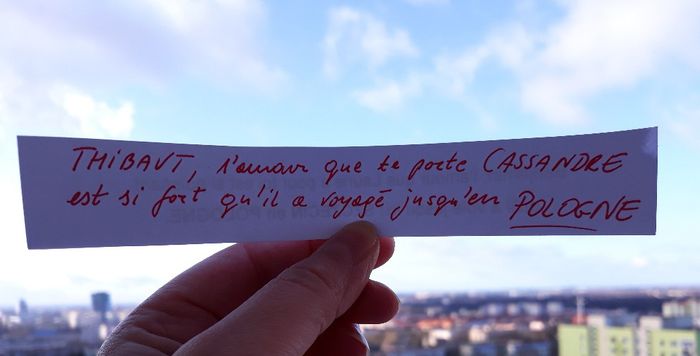 THIBAUT, l'amour que te porte CASSANDRE
est si fort qu'il a voyagé jusqu'en POLOGNE